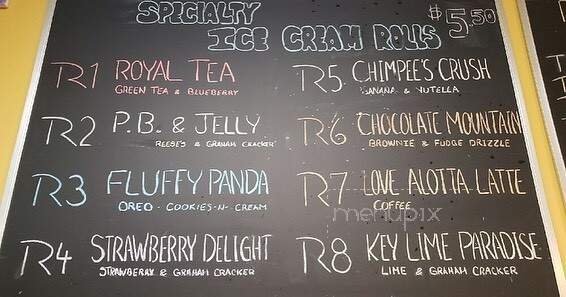 SPECIALTY
ICE CREAM ROLLS $5.50
R1 ROYAL TEA
GREEN TEA & BLUEBERRY
R2 P.B. & JELLY
REESE'S & GRAHAM CRACKER
R3 FLUFFY PANDA
OREO - COOKIES-N-CREAM
R4 STRAWBERRY DELIGHT
STRAWBERRY & GRAHAM CRACKER
R5 CHIMPEE'S CRUSH
BANANA & NUTELLA
R6 CHOCOLATE MOUNTAIN
BROWNIE & FUDGE DRIZZLE
R7 LOVE ALOTTA LATTE
COFFEE
menupix
R8 KEY LIME PARADISE
LIME & GRAHAM CRACKER